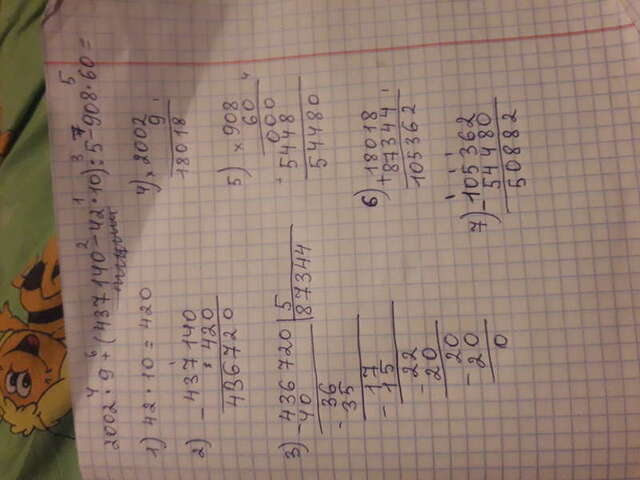 4 6 2 1 3 7 5
2002 · 9 + (437140 - 42 · 10) : 5 - 908 · 60 =
1) 42 · 10 = 420
2) - 437140
420
436720
3) - 436720 | 5
40 | 87344
- 36
35
- 17
15
- 22
20
- 20
20
0
4) × 2002
9
18018
5) × 908
60
000
5448
54480
6) + 18018
87344
105362
7) - 105362
54480
50882